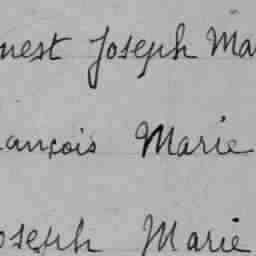 nest Joseph Ma
ançois Marie
oseph Marie